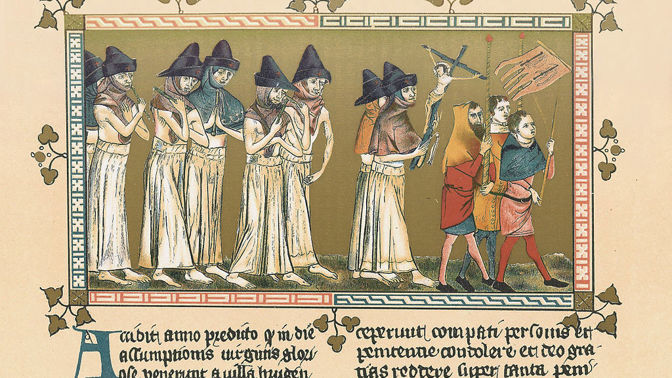 Accidit anno predicto q̄ in die
assumptionis virginis glori
ose venerunt a villa brugen
ceperunt compati personis et
penitentie condolere et deo gra
tias reddere super tanta peni